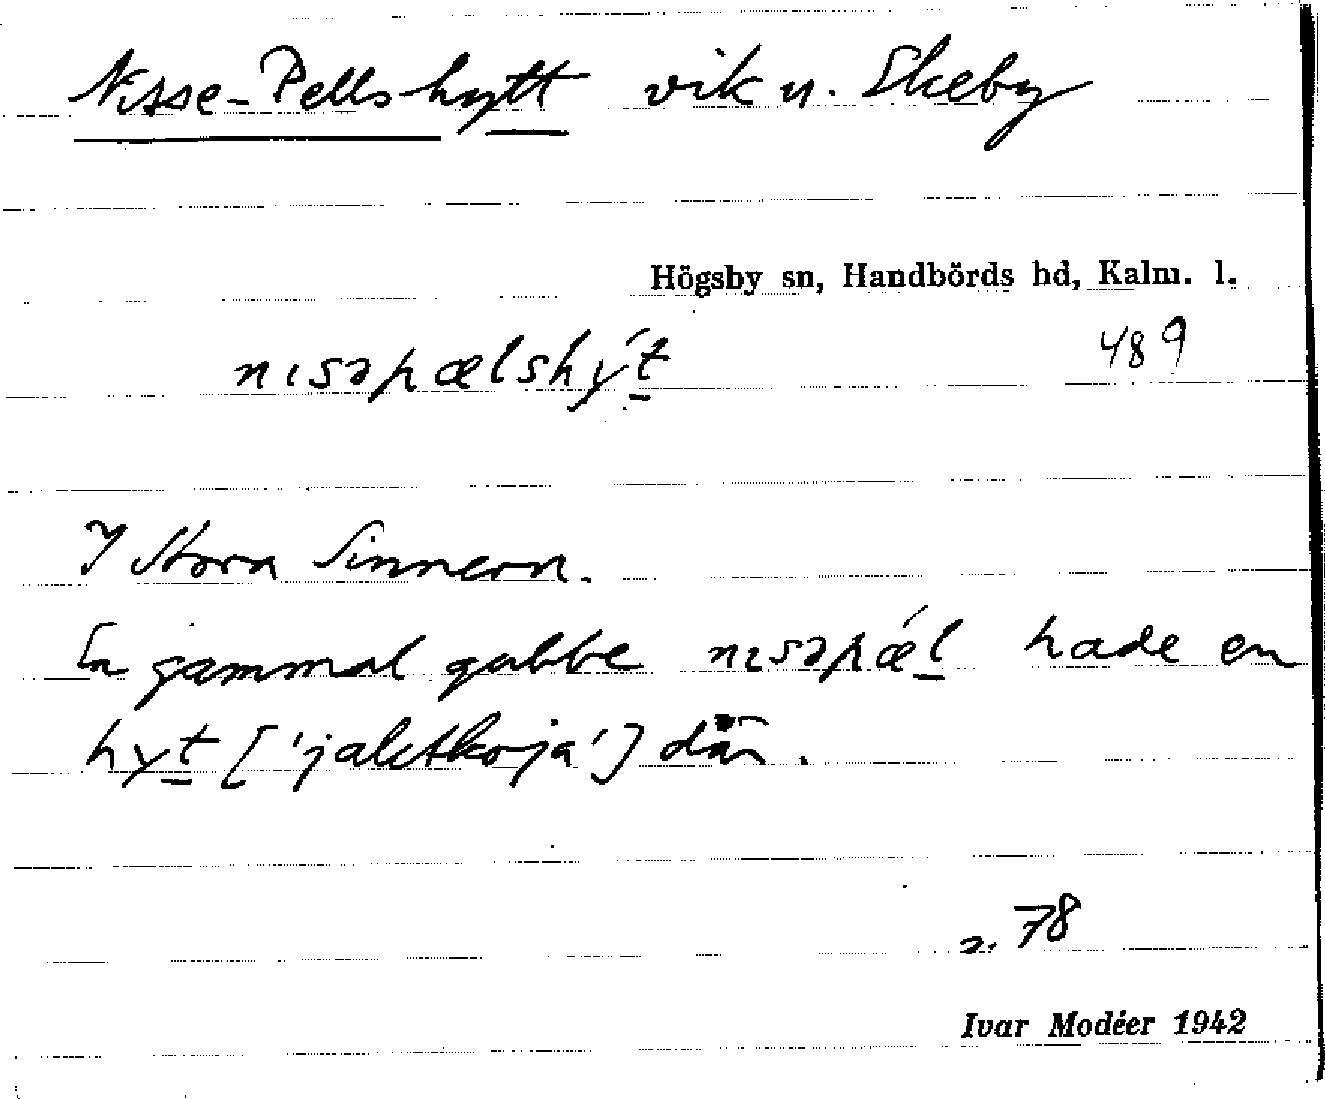 Nisse-Pellshytt vik u. Skeby
Högsby sn, Handbörds hd, Kalm. l.
nɪsəpælshýt 489
I Stora Sinnern.
En gammal gubbe nɪsəpǽl hade en
hyt ['jaktkoja'] där.
s. 78
Ivar Modéer 1942